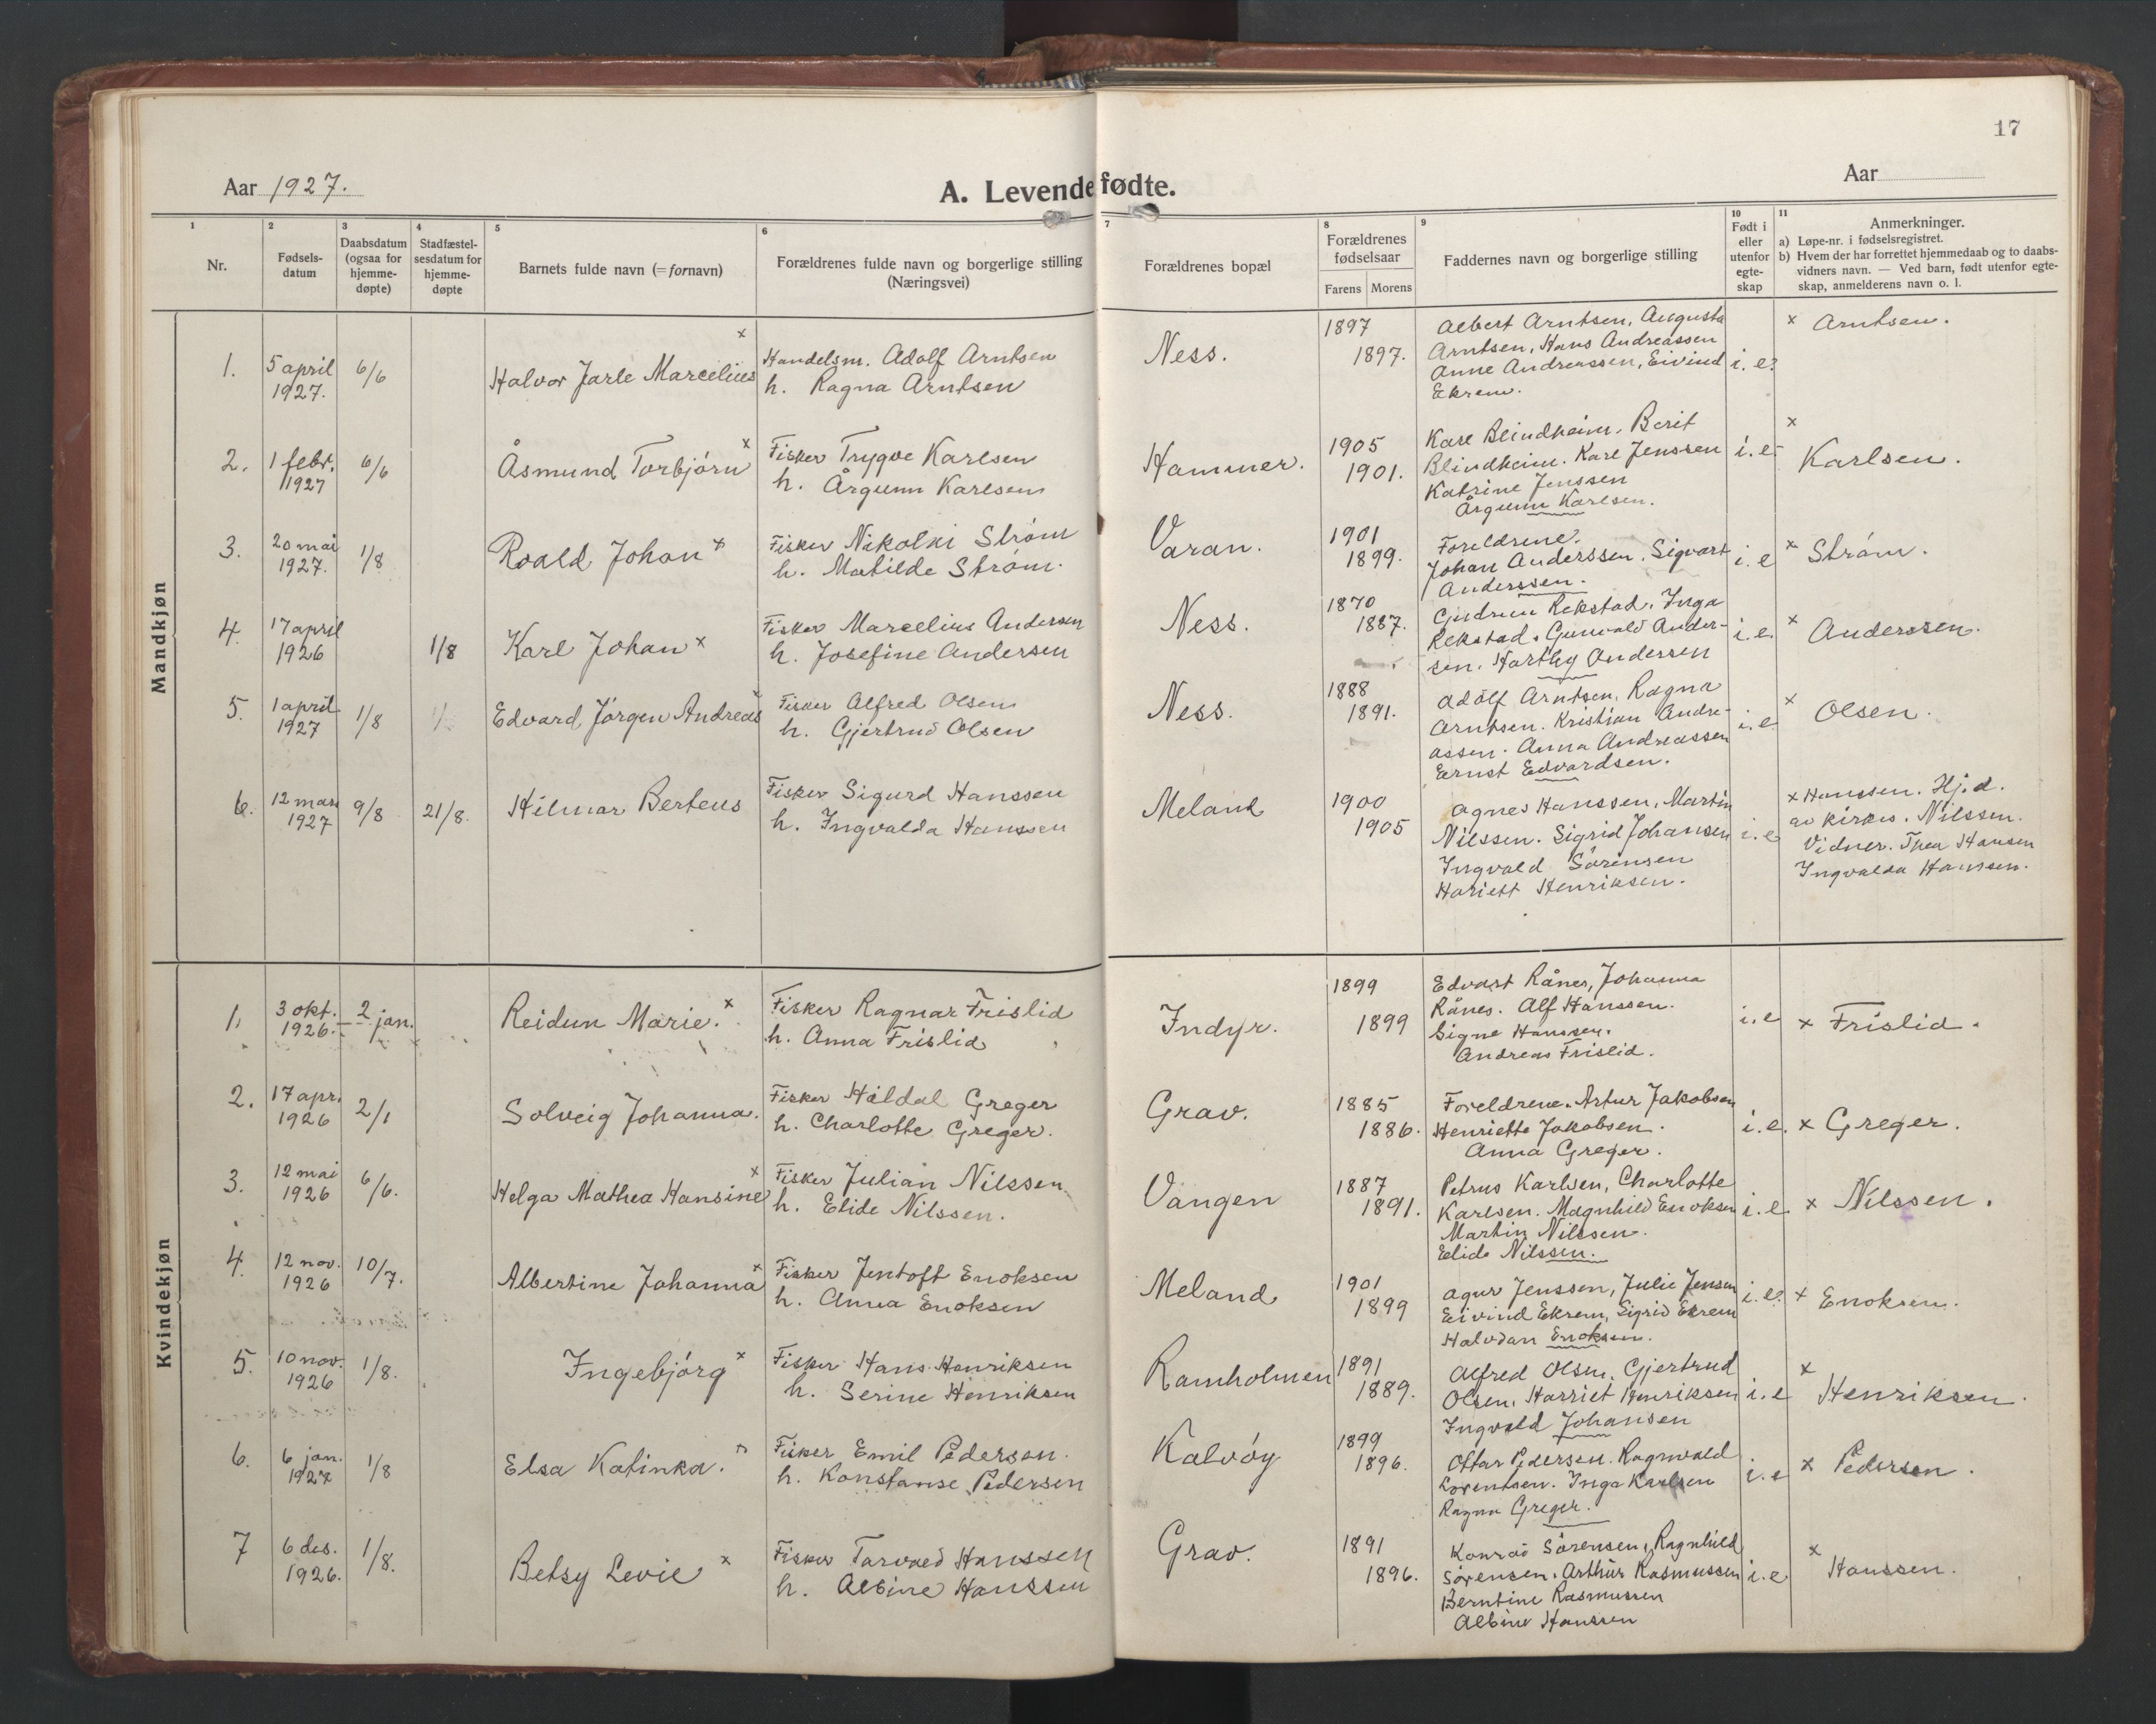 17
Aar 1927.
A. Levendefødte.
Aar
1
Nr.
2
Fødsels-
datum
3
Daabsdatum
(ogsaa for
hjemme-
døpte)
4
Stadfæstel-
sesdatum for
hjemme-
døpte
5
Barnets fulde navn (= fornavn)
6
Forældrenes fulde navn og borgerlige stilling
(Næringsvei)
7
Forældrenes bopæl
8
Forældrenes
fødselsaar
Farens Morens
9
Faddernes navn og borgerlige stilling
10
Født i
eller
utenfor
egte-
skap
11
Anmerkninger.
a) Løpe-nr. i fødselsregistret.
b) Hvem der har forrettet hjemmedaab og to daabs-
vidners navn. — Ved barn, født utenfor egte-
skap, anmelderens navn o. l.
Mandkjøn
1.
5 april
1927.
6/6
Halvor Jarle Marcelius x
Handelsm. Adolf Arntsen
h. Ragna Arntsen
Ness.
1897
1897.
Albert Arntsen, Augusta
Arntsen, Hans Andreassen
Anne Andreassen, Eivind
Ekrem.
i. e.
x Arntsen.
2.
1 febr.
1927
6/6
Åsmund Torbjörn x
Fisker Trygve Karlsen
h. Årgunn Karlsen
Hammer.
1905
1901.
Kare Blindheim. Berit
Blindheim. Karl Jenssen
Katrine Jenssen
Årgunn Karlsen.
i. e.
x
Karlsen.
3.
20 mai
1927.
1/8
Roald Johan x
Fisker Nikolai Ström
h. Matilde Ström.
Varan.
1901
1899.
Foreldrene.
Johan Anderssen. Sigvart
Anderssen.
i. e
x Ström.
4.
17 april
1926
1/8
Karl Johan x
Fisker Marcelius Andersen
h. Josefine Andersen
Ness.
1870
1887.
Gudrun Rekstad. Inga
Rekstad. Gunvald Ander-
sen. Harthy Andersen
i. e.
x Anderssen.
5.
1 april
1927
1/8
Edvard Jörgen Andreas x
Fisker Alfred Olsen
h. Gjertrud Olsen
Ness.
1888
1891.
Adolf Arntsen, Ragna
Arntsen. Kristian Andre-
assen. Anna Andreassen
Ernst Edvardsen.
i. e
x Olsen.
6.
12 mars
1927
9/8
21/8.
Hilmar Berteus
Fisker Sigurd Hanssen
h. Ingvalda Hanssen
Meland
1900
1905
Agnes Hanssen, Martin
Nilssen. Sigrid Johansen
Ingvald Sörensen
Hariett Henriksen.
i. e
x Hanssen. Hj.d.
av kirkes. Nilssen.
Vidner. Thea Hansen
Ingvalda Hanssen.
Kvindekjøn
1.
3 okt.
1926.
2 jan.
Reidun Marie. x
Fisker Ragnar Frislid
h. Anna Frislid
Indyr.
1899
1899
Edvart Rånes, Johanna
Rånes. Alf Hanssen.
Signe Hanssen.
Andreas Frislid.
i. e
x Frislid.
2.
17 apr.
1926
2/1
Solveig Johanna.
Fisker Haldal Greger
h. Charlotte Greger.
Grav.
1885
1886.
Foreldrene. Artur Jakobsen
Henriette Jakobsen.
Anna Greger.
i. e.
x Greger.
3.
12 mai
1926
6/6.
Helga Mathea Hansine x
Fisker Julian Nilssen
h. Elide Nilssen.
Vangen
1887
1891.
Petrus Karlsen, Charlotte
Karlsen. Magnhild Enoksen
Martin Nilssen.
Elide Nilssen.
i. e
x Nilssen.
4.
12 nov.
1926
10/7.
Albertine Johanna x
Fisker Jentoft Enoksen
h. Anna Enoksen
Meland
1901
1899
Agur Jenssen, Julie Jensen
Eivind Ekrem, Sigrid Ekrem
Halvdan Enoksen.
i. e.
x Enoksen.
5.
10 nov.
1926
1/8.
Ingebjörg x
Fisker Hans Henriksen
h. Serine Henriksen
Ramholmen
1891
1889.
Alfred Olsen, Gjertrud
Olsen, Harriet Henriksen
Ingvald Johansen
i. e
x
Henriksen.
6.
6 jan.
1927
1/8
Elsa Katinka. x
Fisker Emil Pedersen.
h. Konstanse Pedersen
Kalvöy
1899
1896.
Ottar Pedersen. Ragnvald
Lorentsen. Inga Karlsen
Ragna Greger.
i. e
x Pedersen.
7
6 des.
1926.
1/8.
Betsy Levie x
Fisker Torvald Hanssen
h. Albine Hanssen
Grav.
1891
1896.
Konrad Sörensen, Ragnhild
Sörensen. Arthur Rasmussen
Berntine Rasmussen
Albine Hanssen
i. e
x
Hanssen.